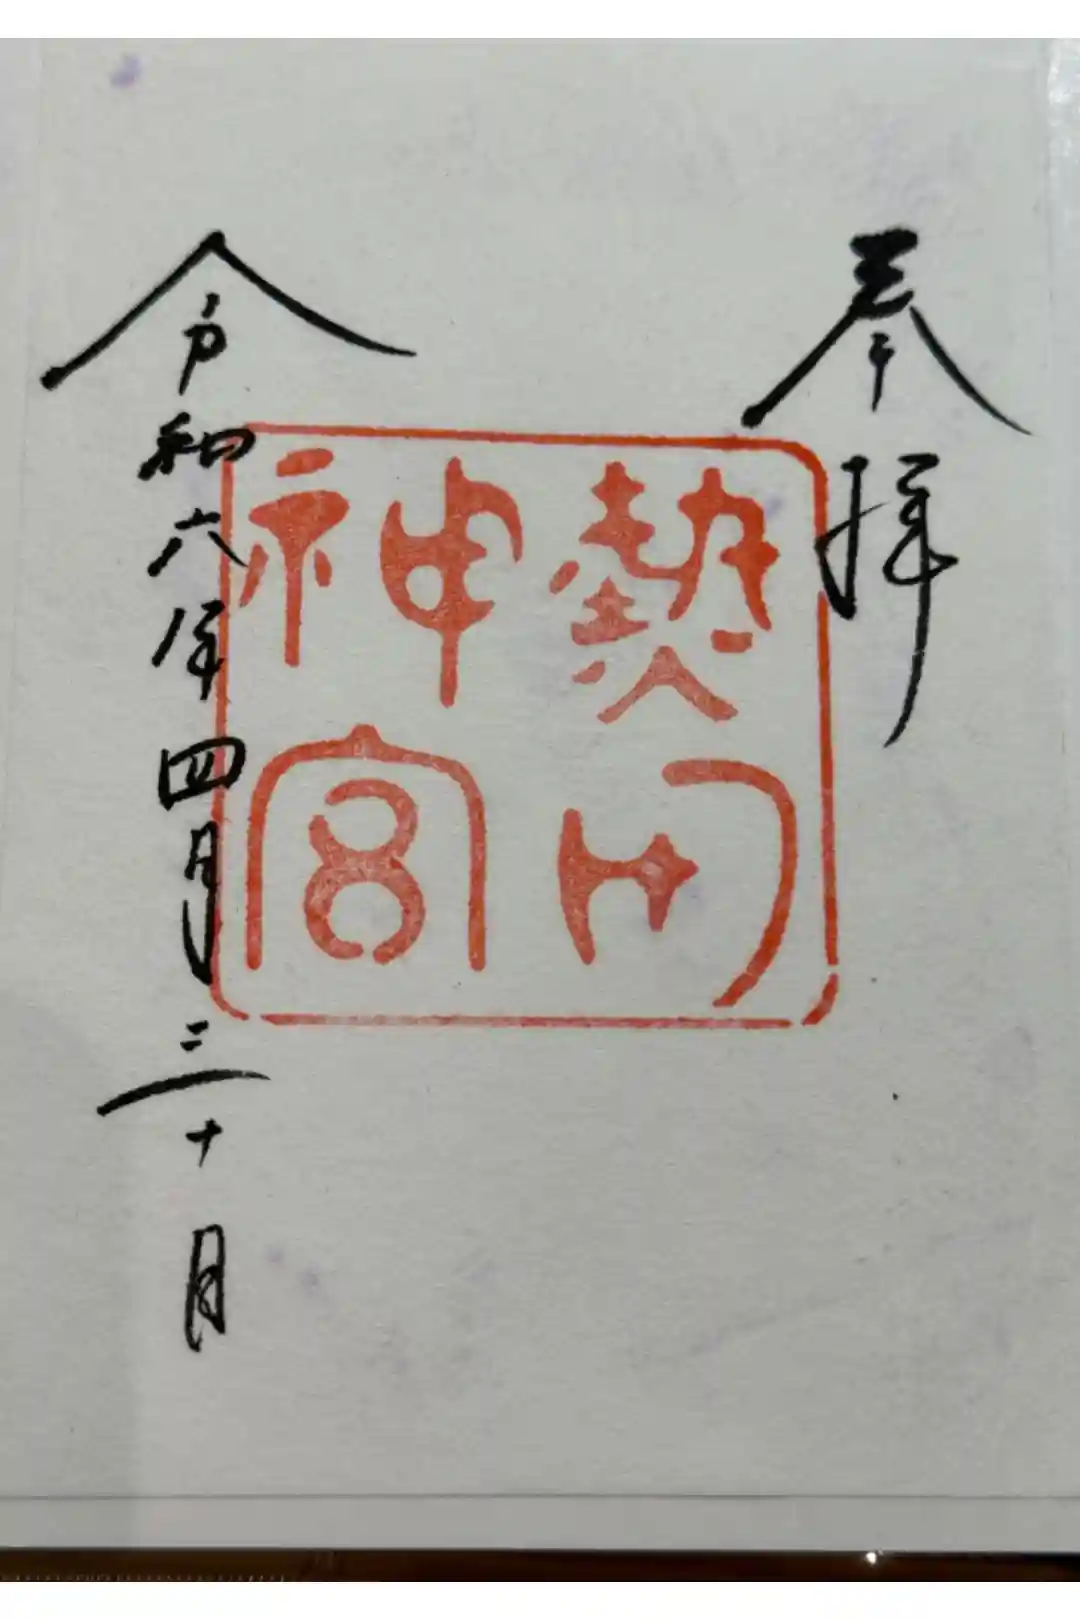 奉拝
熱田
神宮
令和六年四月三十日